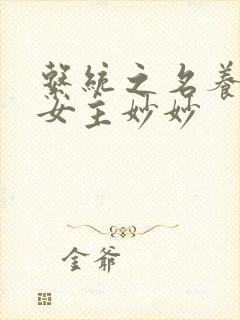 繫統之名養
女主妙妙
金爺